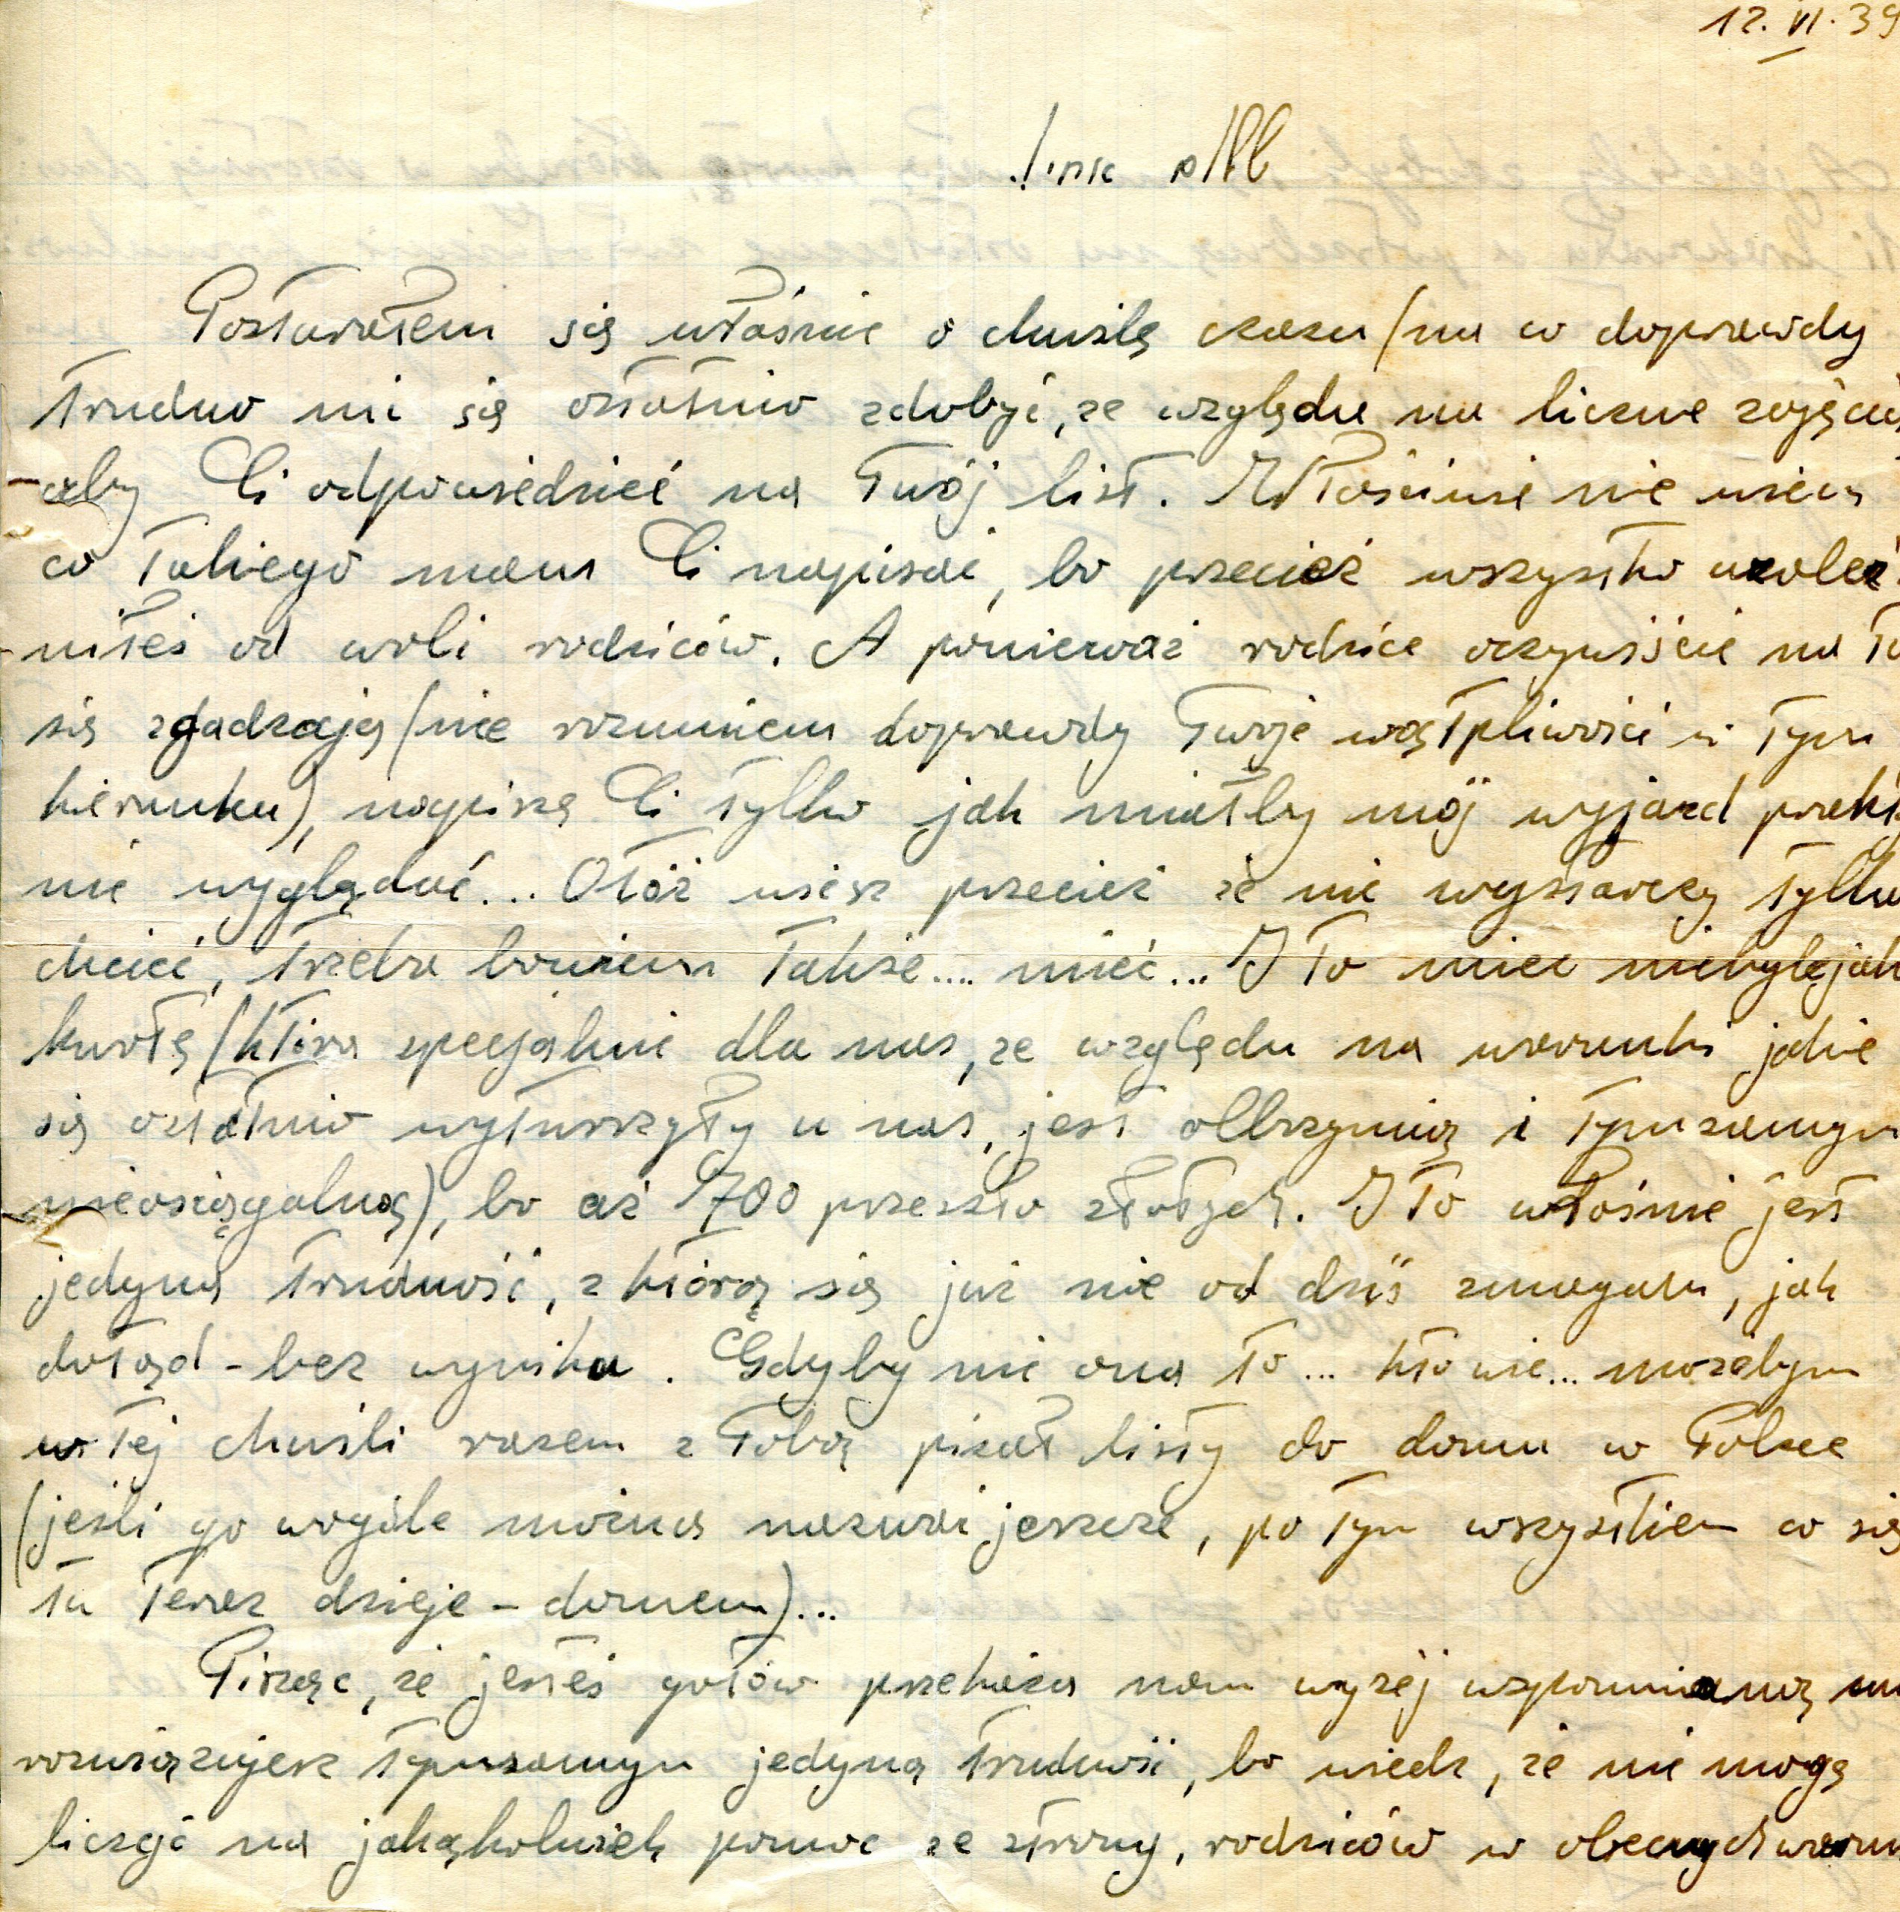 12.VI.39
Postarałem się właśnie o chwilę czasu (na co doprawdy
trudno mi się ostatnio zdobyć, ze względu na liczne zajęcia
aby Ci odpowiedzieć na Twój list. Właściwie nie wiem
co takiego mam Ci napisać, bo przecież wszystko uzależ-
niłeś od woli rodziców. A ponieważ rodzice oczywiście na to
się zgadzają (nie rozumiem doprawdy Twoje wątpliwości w tym
kierunku), napiszę Ci tylko jak miałby mój wyjazd prakty
nie wyglądać... Otóż wiesz przecież że nie wystarczy tylko
chcieć, trzeba bowiem także.... mieć... I to mieć niebylejak
kwotę (która specjalnie dla nas, ze względu na warunki jakie
się ostatnio wytworzyły u nas, jest olbrzymią i tymsamym
nieosiągalną), bo aż 700 przeszło złotych. I to właśnie jest
jedyna trudność, z którą się już nie od dziś zmagam, jak
dotąd - bez wyniku. Gdyby nie ona to... kto wie... możebym
w tej chwili razem z Tobą pisał listy do domu w Polsce
(jeśli go wogóle można nazwać jeszcze, po tym wszystkiem co się
tu teraz dzieje - domem)...
Pisząc, że jesteś gotów przekażesz nam wyżej wspomnianą
rozwiązujesz tymsamym jedyną trudność, bo wiedz, że nie mogę
liczyć na jakąkolwiek pomoc ze strony, rodziców w obecnych warun